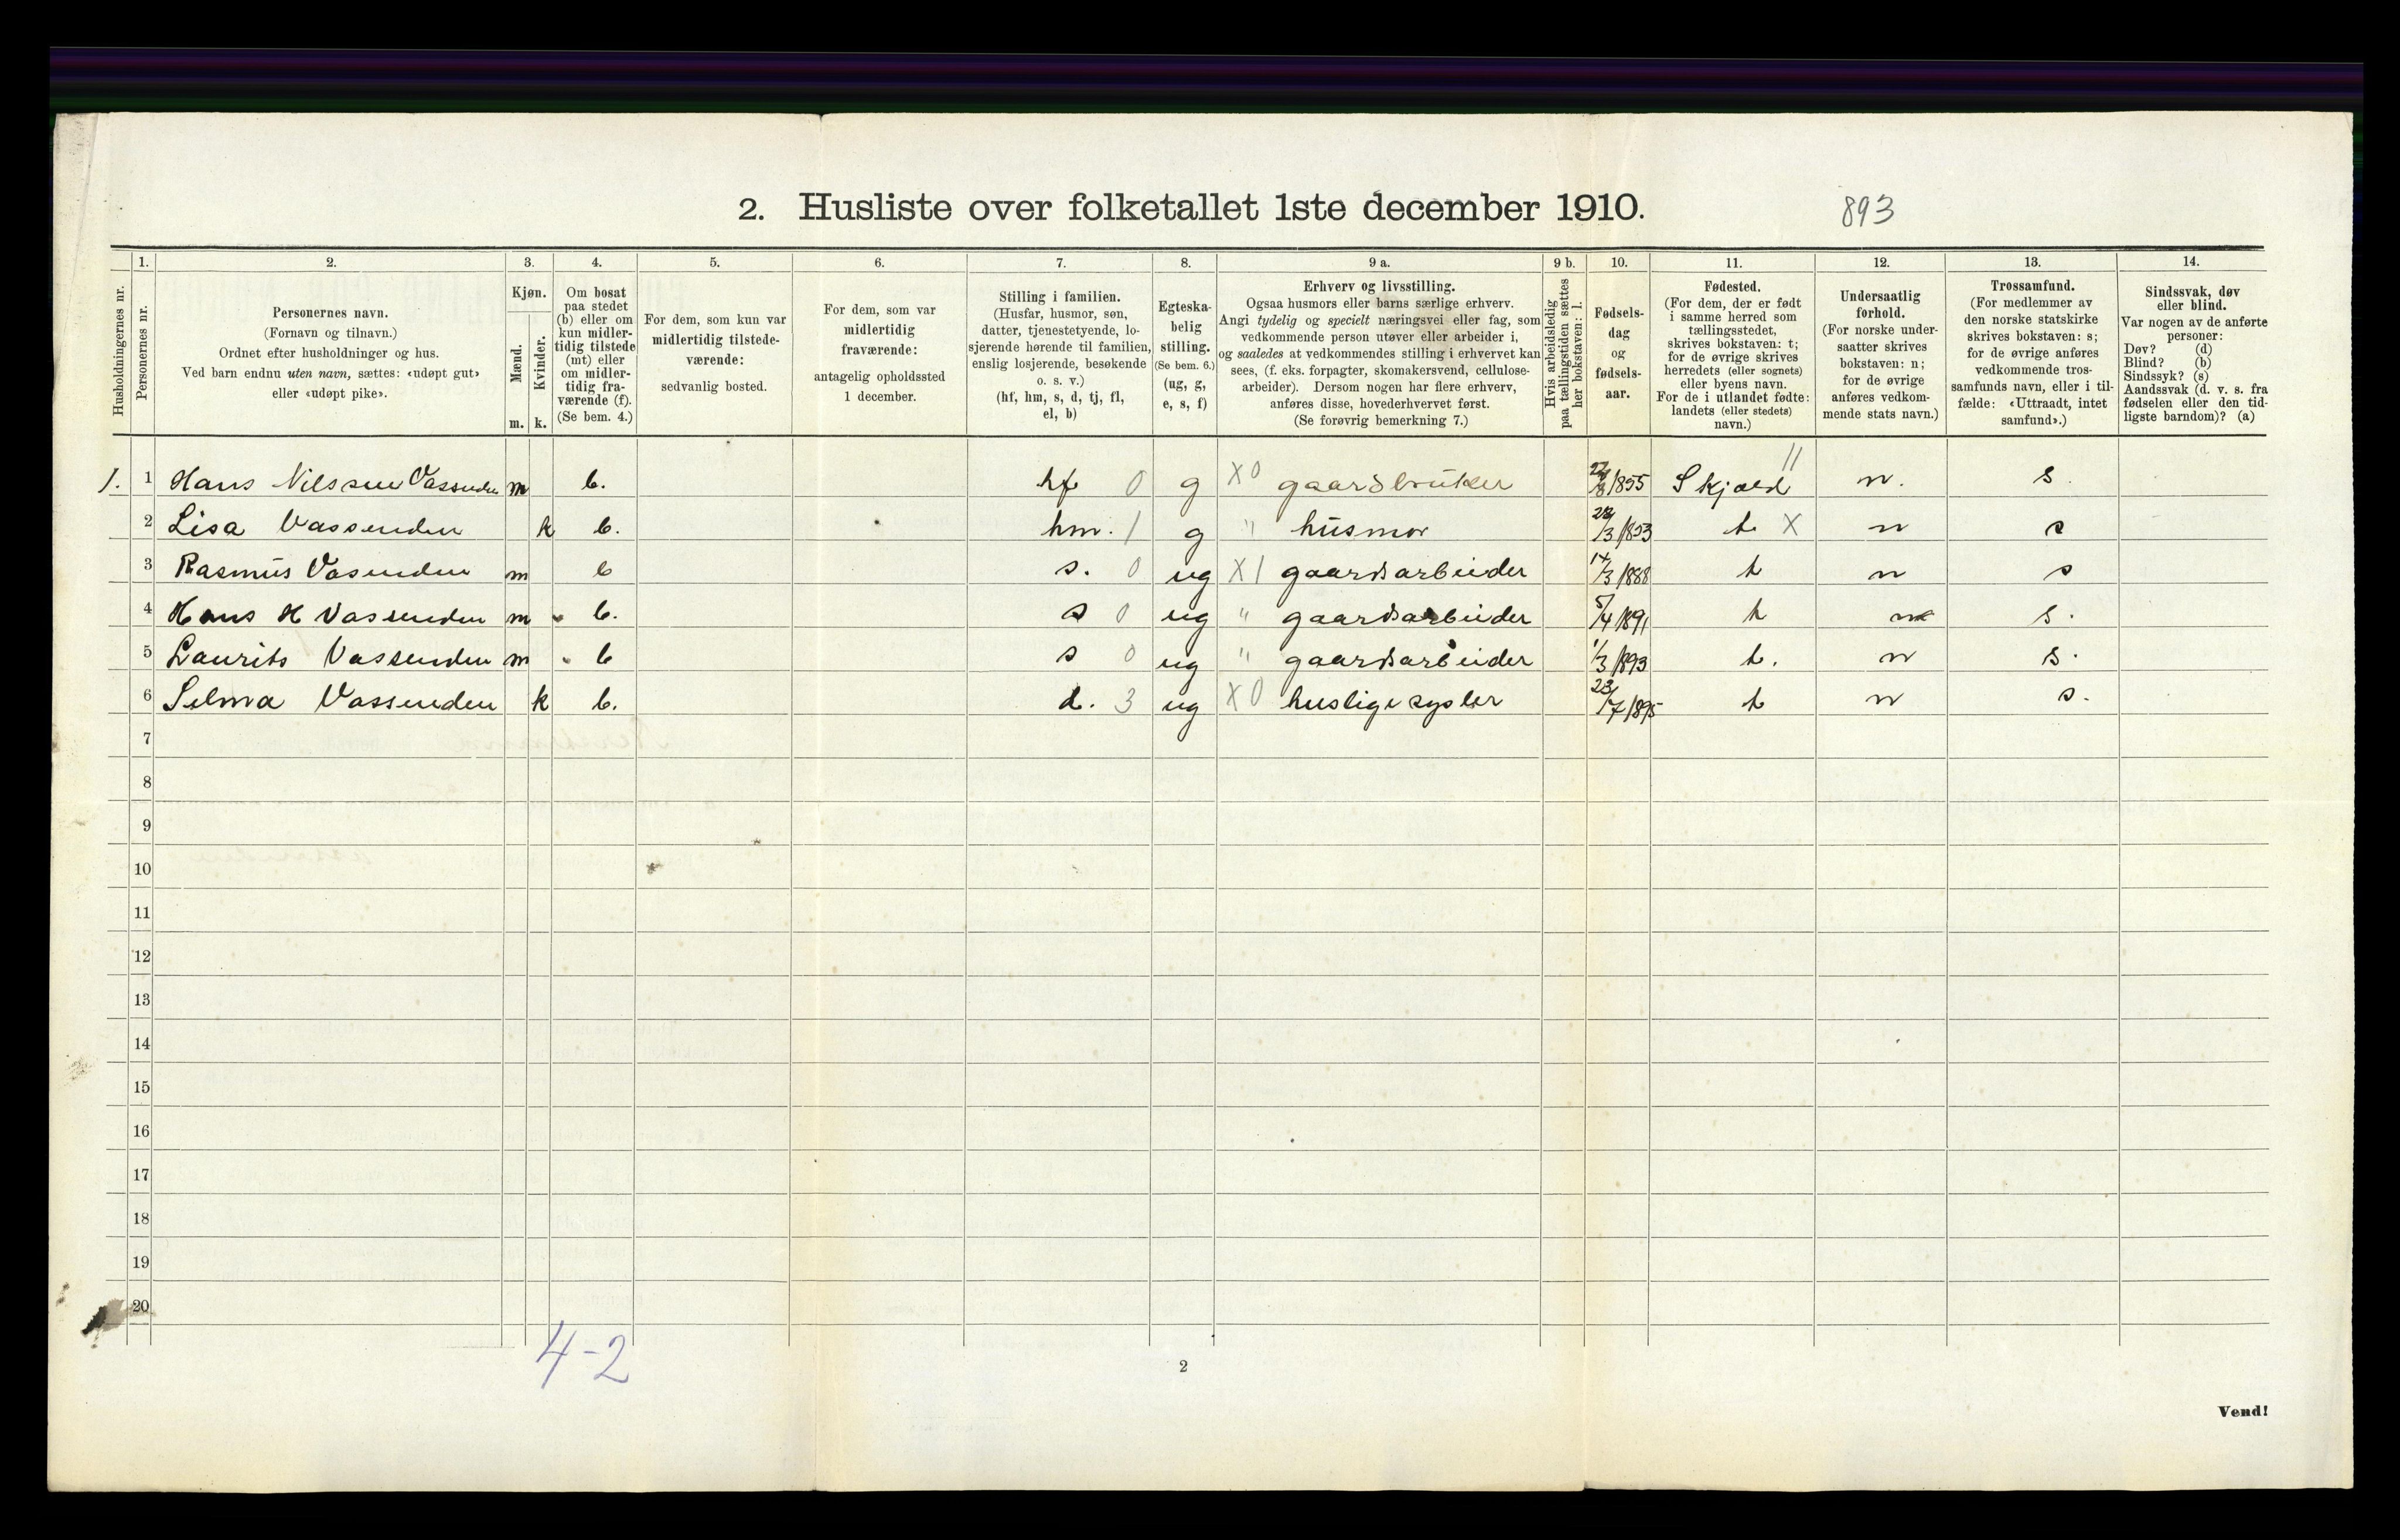 2. Husliste over folketallet 1ste december 1910.
893
1.
2.
3.
4.
5.
6.
7.
8.
9 a.
9 b.
10.
11.
12.
13.
14.
Husholdningernes nr.
Personernes nr.
Personernes navn.
(Fornavn og tilnavn.)
Ordnet efter husholdninger og hus.
Ved barn endnu uten navn, sættes: «udøpt gut»
eller «udøpt pike».
Kjøn.
Mænd.
Kvinder.
m. k.
Om bosat
paa stedet
(b) eller om
kun midler-
tidig tilstede
(mt) eller
om midler-
tidig fra-
værende (f).
(Se bem. 4.)
For dem, som kun var
midlertidig tilstede-
værende:
sedvanlig bosted.
For dem, som var
midlertidig
fraværende:
antagelig opholdssted
1 december.
Stilling i familien.
(Husfar, husmor, søn,
datter, tjenestetyende, lo-
sjerende hørende til familien,
enslig losjerende, besøkende
o. s. v.)
(hf, hm, s, d, tj, fl,
el, b)
Egteska-
belig
stilling.
(Se bem. 6.)
(ug, g,
e, s, f)
Erhverv og livsstilling.
Ogsaa husmors eller barns særlige erhverv.
Angi tydelig og specielt næringsvei eller fag, som
vedkommende person utøver eller arbeider i,
og saaledes at vedkommendes stilling i erhvervet kan
sees, (f. eks. forpagter, skomakersvend, cellulose-
arbeider). Dersom nogen har flere erhverv,
anføres disse, hovederhvervet først.
(Se forøvrig bemerkning 7.)
Hvis arbeidsledig
paa tællingstiden sættes
her bokstaven: l.
Fødsels-
dag
og
fødsels-
aar.
Fødested.
(For dem, der er født
i samme herred som
tællingsstedet,
skrives bokstaven: t;
for de øvrige skrives
herredets (eller sognets)
eller byens navn.
For de i utlandet fødte:
landets (eller stedets)
navn.)
Undersaatlig
forhold.
(For norske under-
saatter skrives
bokstaven: n;
for de øvrige
anføres vedkom-
mende stats navn.)
Trossamfund.
(For medlemmer av
den norske statskirke
skrives bokstaven: s;
for de øvrige anføres
vedkommende tros-
samfunds navn, eller i til-
fælde: «Uttraadt, intet
samfund».)
Sindssvak, døv
eller blind.
Var nogen av de anførte
personer:
Døv? (d)
Blind? (b)
Sindssyk? (s)
Aandssvak (d. v. s. fra
fødselen eller den tid-
ligste barndom)? (a)
1. 1 Hans Nilssen Vassenden m b. hf 0 g X0 gaardbruker /8 1855 Skjold 11 n. s.
2 Lisa Vassenden k b. hm. 1 g " husmor /3 1853 t X n s
3 Rasmus Vasenden m b s. 0 ug X1 gaardsarbeider 14/3 1888 t n s
4 Hans H Vassenden m b. s 0 ug " gaardsarbeider 5/4 1891 t n s.
5 Laurits Vassenden m b s 0 ug " gaardsarbeider 1/3 1893 t. n s.
6 Selma Vassenden k b. d. 3 ug X0 huslige sysler 23/7 1895 t n s.
7
8
9
10
11
12
13
14
15
16
17
18
19
20
4-2
2
Vend!